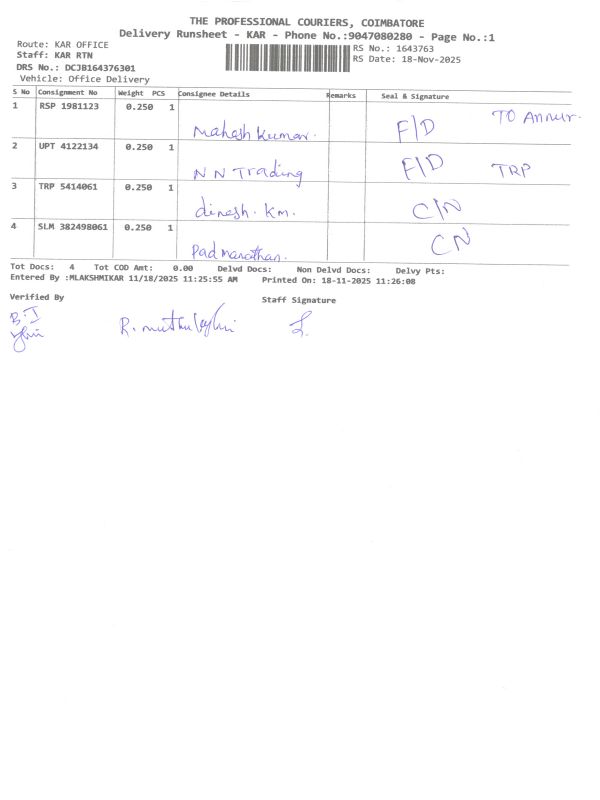 THE PROFESSIONAL COURIERS, COIMBATORE
Delivery Runsheet - KAR - Phone No.:9047080280 - Page No.:1
Route: KAR OFFICE
Staff: KAR RTN
DRS No.: DCJB164376301
Vehicle: Office Delivery
RS No.: 1643763
RS Date: 18-Nov-2025
S No Consignment No Weight PCS Consignee Details Remarks Seal & Signature
1 RSP 1981123 0.250 1 Mahesh Kumar. F/D TO Annur.
2 UPT 4122134 0.250 1 N N Trading F/D TRP
3 TRP 5414061 0.250 1 dinesh. km. C/N
4 SLM 382498061 0.250 1 Padmanathan. CN
Tot Docs: 4 Tot COD Amt: 0.00 Delvd Docs: Non Delvd Docs: Delvy Pts:
Entered By :MLAKSHMIKAR 11/18/2025 11:25:55 AM Printed On: 18-11-2025 11:26:08
Verified By Staff Signature